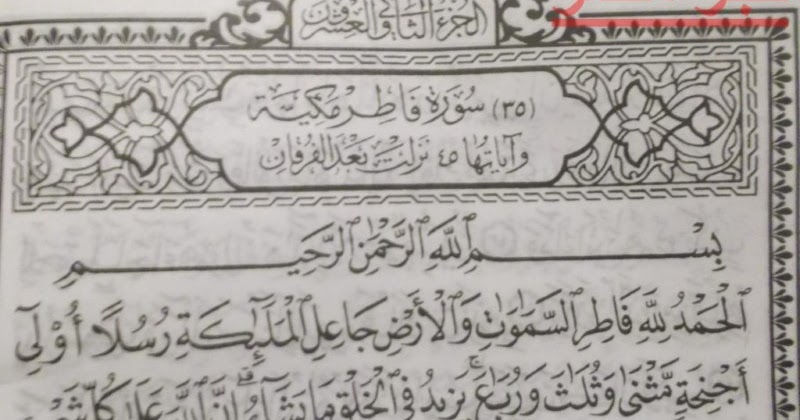 الجزء الثاني والعشرون
(٣٥) سُورَة فَاطِر مَكيَّة
وَآيَاتُهَا ٤٥ نَزَلَتْ بَعْدَ الفُرْقَانِ
بِسْمِ ٱللَّهِ ٱلرَّحْمَٰنِ ٱلرَّحِيمِ
ٱلْحَمْدُ لِلَّهِ فَاطِرِ ٱلسَّمَٰوَٰتِ وَٱلْأَرْضِ جَاعِلِ ٱلْمَلَٰٓئِكَةِ رُسُلًا أُو۟لِىٓ
أَجْنِحَةٍ مَّثْنَىٰ وَثُلَٰثَ وَرُبَٰعَ ۚ يَزِيدُ فِى ٱلْخَلْقِ مَا يَشَآءُ ۚ إِنَّ ٱللَّهَ عَلَىٰ كُلِّ